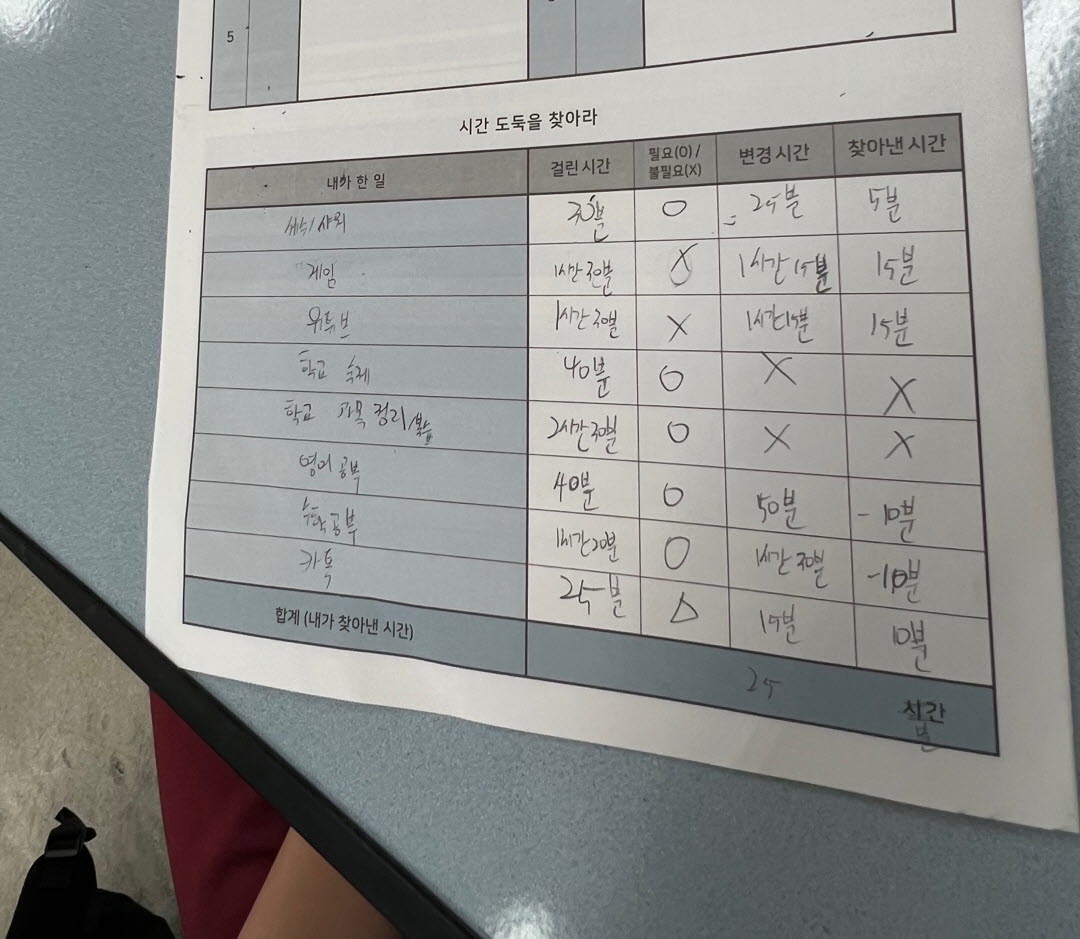 5
시간 도둑을 찾아라
내가 한 일 걸린 시간 필요(O) / 불필요(X) 변경 시간 찾아낸 시간
세수/샤워 30분 O 25분 5분
게임 1시간 30분 X 1시간 15분 15분
유튜브 1시간 30분 X 1시간 15분 15분
학교 숙제 40분 O X X
학교 과목 정리/복습 2시간 30분 O X X
영어 공부 40분 O 50분 -10분
수학 공부 1시간 20분 O 1시간 30분 -10분
카톡 25분 △ 15분 10분
합계 (내가 찾아낸 시간) 25 시간
분